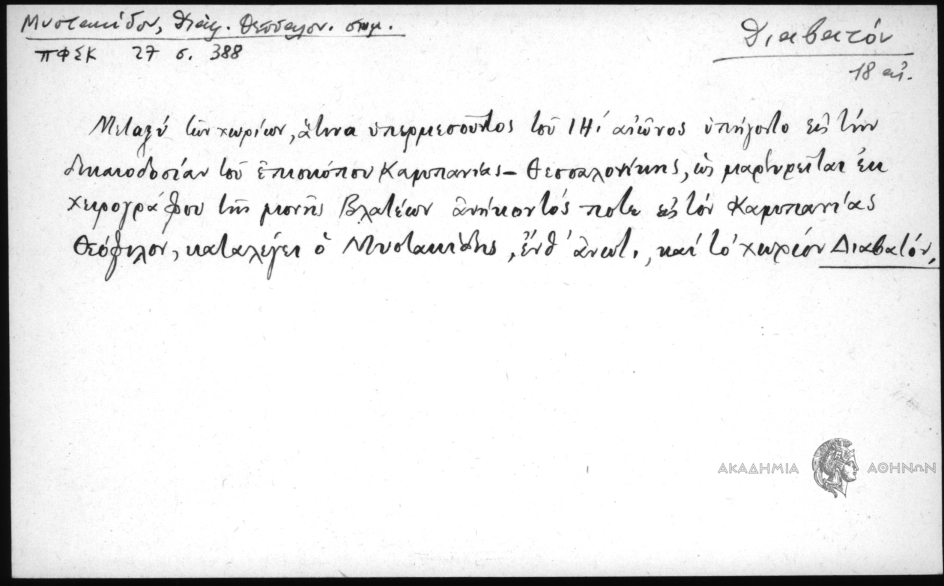 Μυστακίδου, Διάφ. Θεσσαλον. σημ.
ΠΦΣΚ 27 σ. 388
Διαβατόν
18 αἰ.
Μεταξύ τῶν χωρίων, ἅτινα ὑπερμεσοῦντος τοῦ ΙΗ' αἰῶνος ὑπήγοντο εἰς τήν
δικαιοδοσίαν τοῦ ἐπισκόπου Καμπανίας - Θεσσαλονίκης, ὡς μαρτυρεῖται ἐκ
χειρογράφου τῆς μονῆς Βλατέων ἀνήκοντός ποτε εἰς τόν Καμπανίας
Θεόφιλον, καταλέγει ὁ Μυστακίδης, ἔνθ' ἀνωτ., καί τό χωρίον Διαβατόν,
ΑΚΑΔΗΜΙΑ ΑΘΗΝΩΝ